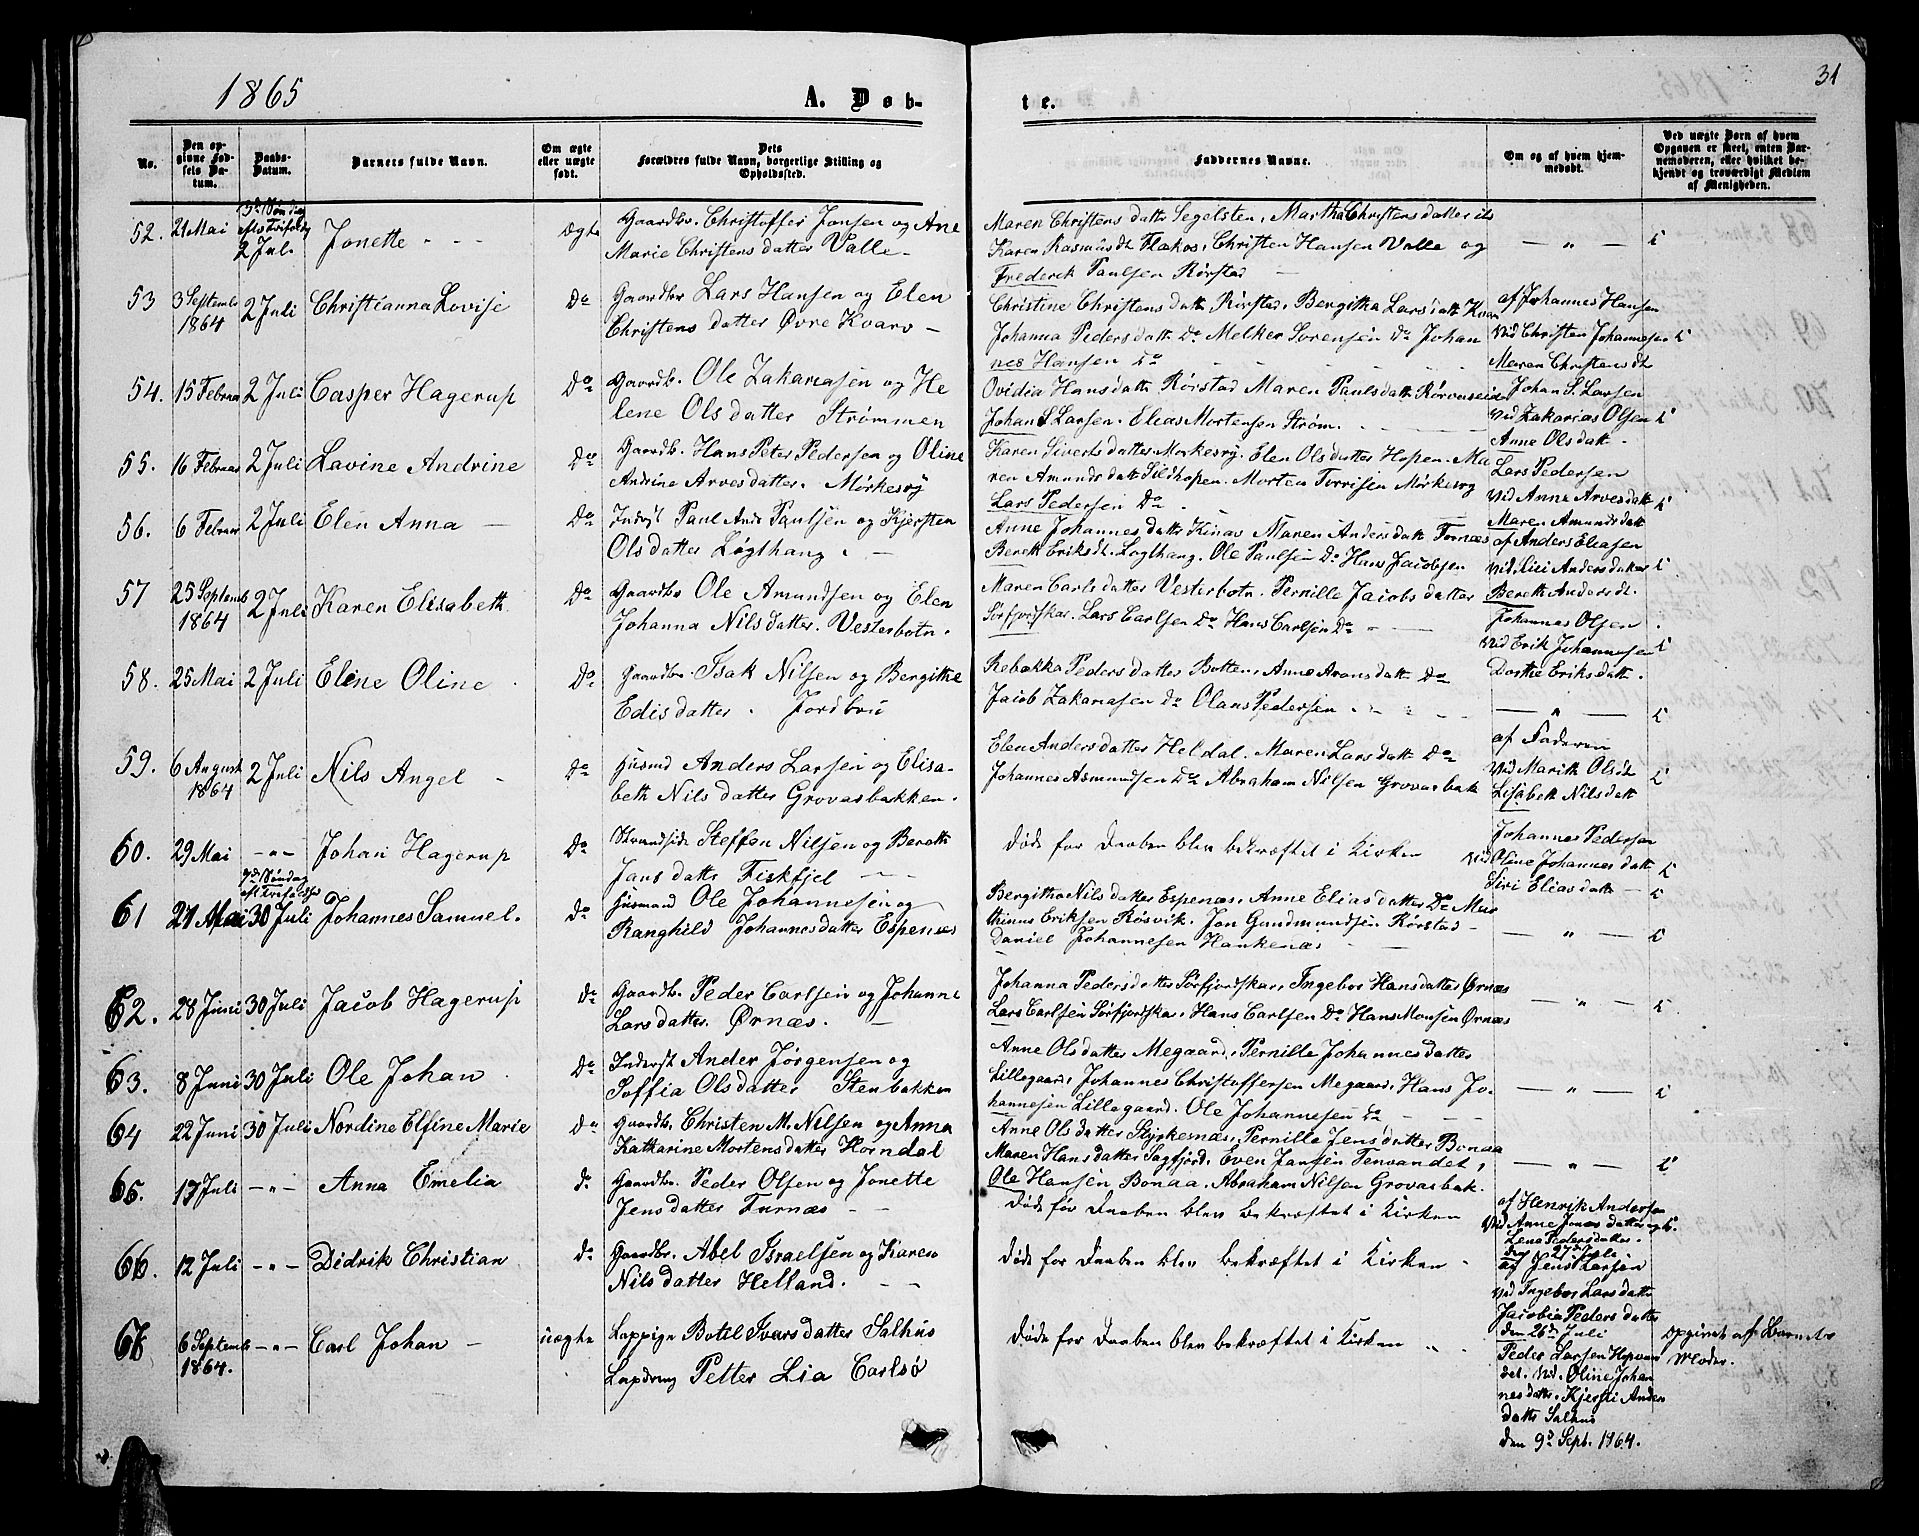 1865
A. Døb-
te.
31
No.
Den op-
givne Fød-
sels Da-
tum.
Daabs-
Datum.
Barnets fulde Navn.
Om ægte
eller uægte
født.
Dets
Forældres fulde Navn, borgerlige Stilling og
Opholdssted.
Faddernes Navne.
Om og af hvem hjem-
medøbt.
Ved uægte Børn af hvem
Opgaven er skeet, enten Bar-
nemoderen, eller hvilket be-
kjendt og troværdigt Medlem
af Menigheden.
52. 21 Mai 2 Juli Jonette ægte Gaardbr. Christoffer Jonsen og Ane
Marie Christensdatter Valle
Maren Christensdatter Segelsten, Martha Christensdatter
Karen Rasmusdt Flakos, Christen Hansen Valle og
Frederik Paulsen Rørstad
53 3 Septembr 1864 2 Juli Christianna Lovise Do Gaardbr Lars Hansen og Elen
Christensdatter Øvre Kvarv
Christine Christensdatt Rørstad, Bergitha Larsdatt Kvarv
Johanna Pedersdatt Do Melker Sørensen Do Johan
nes Hansen Do
af Johannes Hansen
Vid Christen Johannesen
Maren Christensdt
54. 15 Februar 2 Juli Casper Hagerup Do Gaardb. Ole Zakariasen og He
lene Olsdatter Strømmen
Ovidia Hansdatt Rørstad Maren Paulsdatt Rørvaseid
Johan S Larsen. Elias Mortensen Strøm.
Johan S. Larsen
Vid Zakarias Olsen
Anne Olsdatt
55. 16 Februar 2 Juli Lavine Andrine Do Gaardb. Hans Peter Pedersen og Oline
Andrine Arvesdatter. Mørkesvig
Karen Sivertsdatter Mørkesvig. Elen Olsdatter Hopen. Ma
ren Amundsdatt Sildhopen. Morten Torrisen Mørkesvig
Lars Pedersen Do
Lars Pedersen
Vid Anne Arvesdatt
Maren Amundsdatt
56. 6 Februar 2 Juli Elen Anna Do Inderst Paul And. Paulsen og Kjersten
Olsdatter Løgthaug
Anne Johannesdatter Kinas Maren Andersdatt Tornæs
Berett Eriksdt. Løgthaug. Ole Paulsen Do Hans Jacobsen
af Anders Eliasen
Vid. Siri Andersdatter
Berett Andersdt.
57 25 Septemb 1864 2 Juli Karen Elisabeth Do Gaardb. Ole Amundsen og Elen
Johanna Nilsdatter. Vesterbotn.
Maren Carlsdatter Vesterbotn. Pernille Jacobsdatter
Sørfjordskar. Lars Carlsen Do Hans Carlsen Do
Johannes Olsen
Vid Erik Johannesen
Dorthe Eriksdatt.
58. 25 Mai 2 Juli Eline Oline Do Gaardbr. Isak Nilsen og Bergithe
Edisdatter. Jordbru
Rebakka Pedersdatter Botten, Anne Aronsdatt Do
Jacob Zakariasen Do Olaus Pedersen
59. 6 August 1864 2 Juli Nils Angel Do Husmd Anders Larsen og Elisa-
beth Nilsdatter Grovasbakken.
Elen Andersdatter Heldal. Maren Larsdatt Do
Johannes Asmundsen Do Abraham Nilsen Grovasbak
af Faderen
Vid Marith Olsdt
Lisabeth Nilsdatt
60. 29 Mai Johan Hagerup Do Strandsid. Steffen Nilsen og Bereth
Jansdatt Fiskfjel
Døde før Daaben blev bekræftet i Kirken
Johannes Pedersen
Vid Oline Johannesdatt
Siri Eliasdatt
61 21 Mai 30 Juli Johannes Samuel. Do Husmand Ole Johannesen og
Ranghild Johannesdatter Espenæs
Bergitha Nilsdatter Espenæs, Anne Eliasdatter Do Mar
thinus Eriksen Røsvik. Jon Gundmundsen Rørstad
Daniel Johannesen Hankenæs
62. 28 Juni 30 Juli Jacob Hagerup Do Gaardb. Peder Carlsen og Johanne
Larsdatter. Ørnæs.
Johanna Pedersdatter Sørfjordskar, Ingebor Hansdatter Ørnæs
Lars Carlsen Sørfjordskar, Hans Carlsen Do Hans Monsen Ørnæs
63. 8 Juni 30 Juli Ole Johan Do Inderst Ander Jørgensen og
Soffia Olsdatter Stenbakken
Anne Olsdatter Megaard, Pernille Johannesdatter
Lillegaard, Johannes Christoffersen Megaard, Hans Jo-
hannesen Lillegaard. Ole Johannesen Do
64 22 Juni 30 Juli Nordine Elfine Marie Do Gaardb. Christen M. Nilsen og Anna
Katharine Mortensdatter Horndal
Anne Olsdatter Styrkesnæs, Pernille Jensdatter Bonaa
Maren Hansdatter Sagfjord, Even Jansen Tenvandet,
Ole Hansen Bonaa. Abraham Nilsen Grovasbak.
65. 17 Juli Anna Emelia Do Gaardbr. Peder Olsen og Jonette
Jensdatter Furnæs
Døde før Daaben blev bekræftet i Kirken
af Henrik Andersen
Vid Anne Jonasdatter og
Lena Pedersdatter
den 27de Juli
66. 12 Juli Didrik Christian Do Gaardbr. Abel Israelsen og Karen
Nilsdatter Helland.
Døde før Daaben blev bekræftet i Kirken
af Jens Larsen
Vid Ingebor Larsdatt
Jacobia Pedersdatter
den 26de Juli
67 6 Septemb 1864. Carl Johan uægte Lappige Botel Ivarsdatter Salhus
Lapdreng Petter Lia Carlsø
Døde før Daaben blev bekræftet i Kirken
Peder Larsen Hopvan
det. Vid. Oline Johan
nesdatt. Kjersti Anders
datt Salhus
den 9de Sept. 1864.
opgivet af Barnets
Moder.